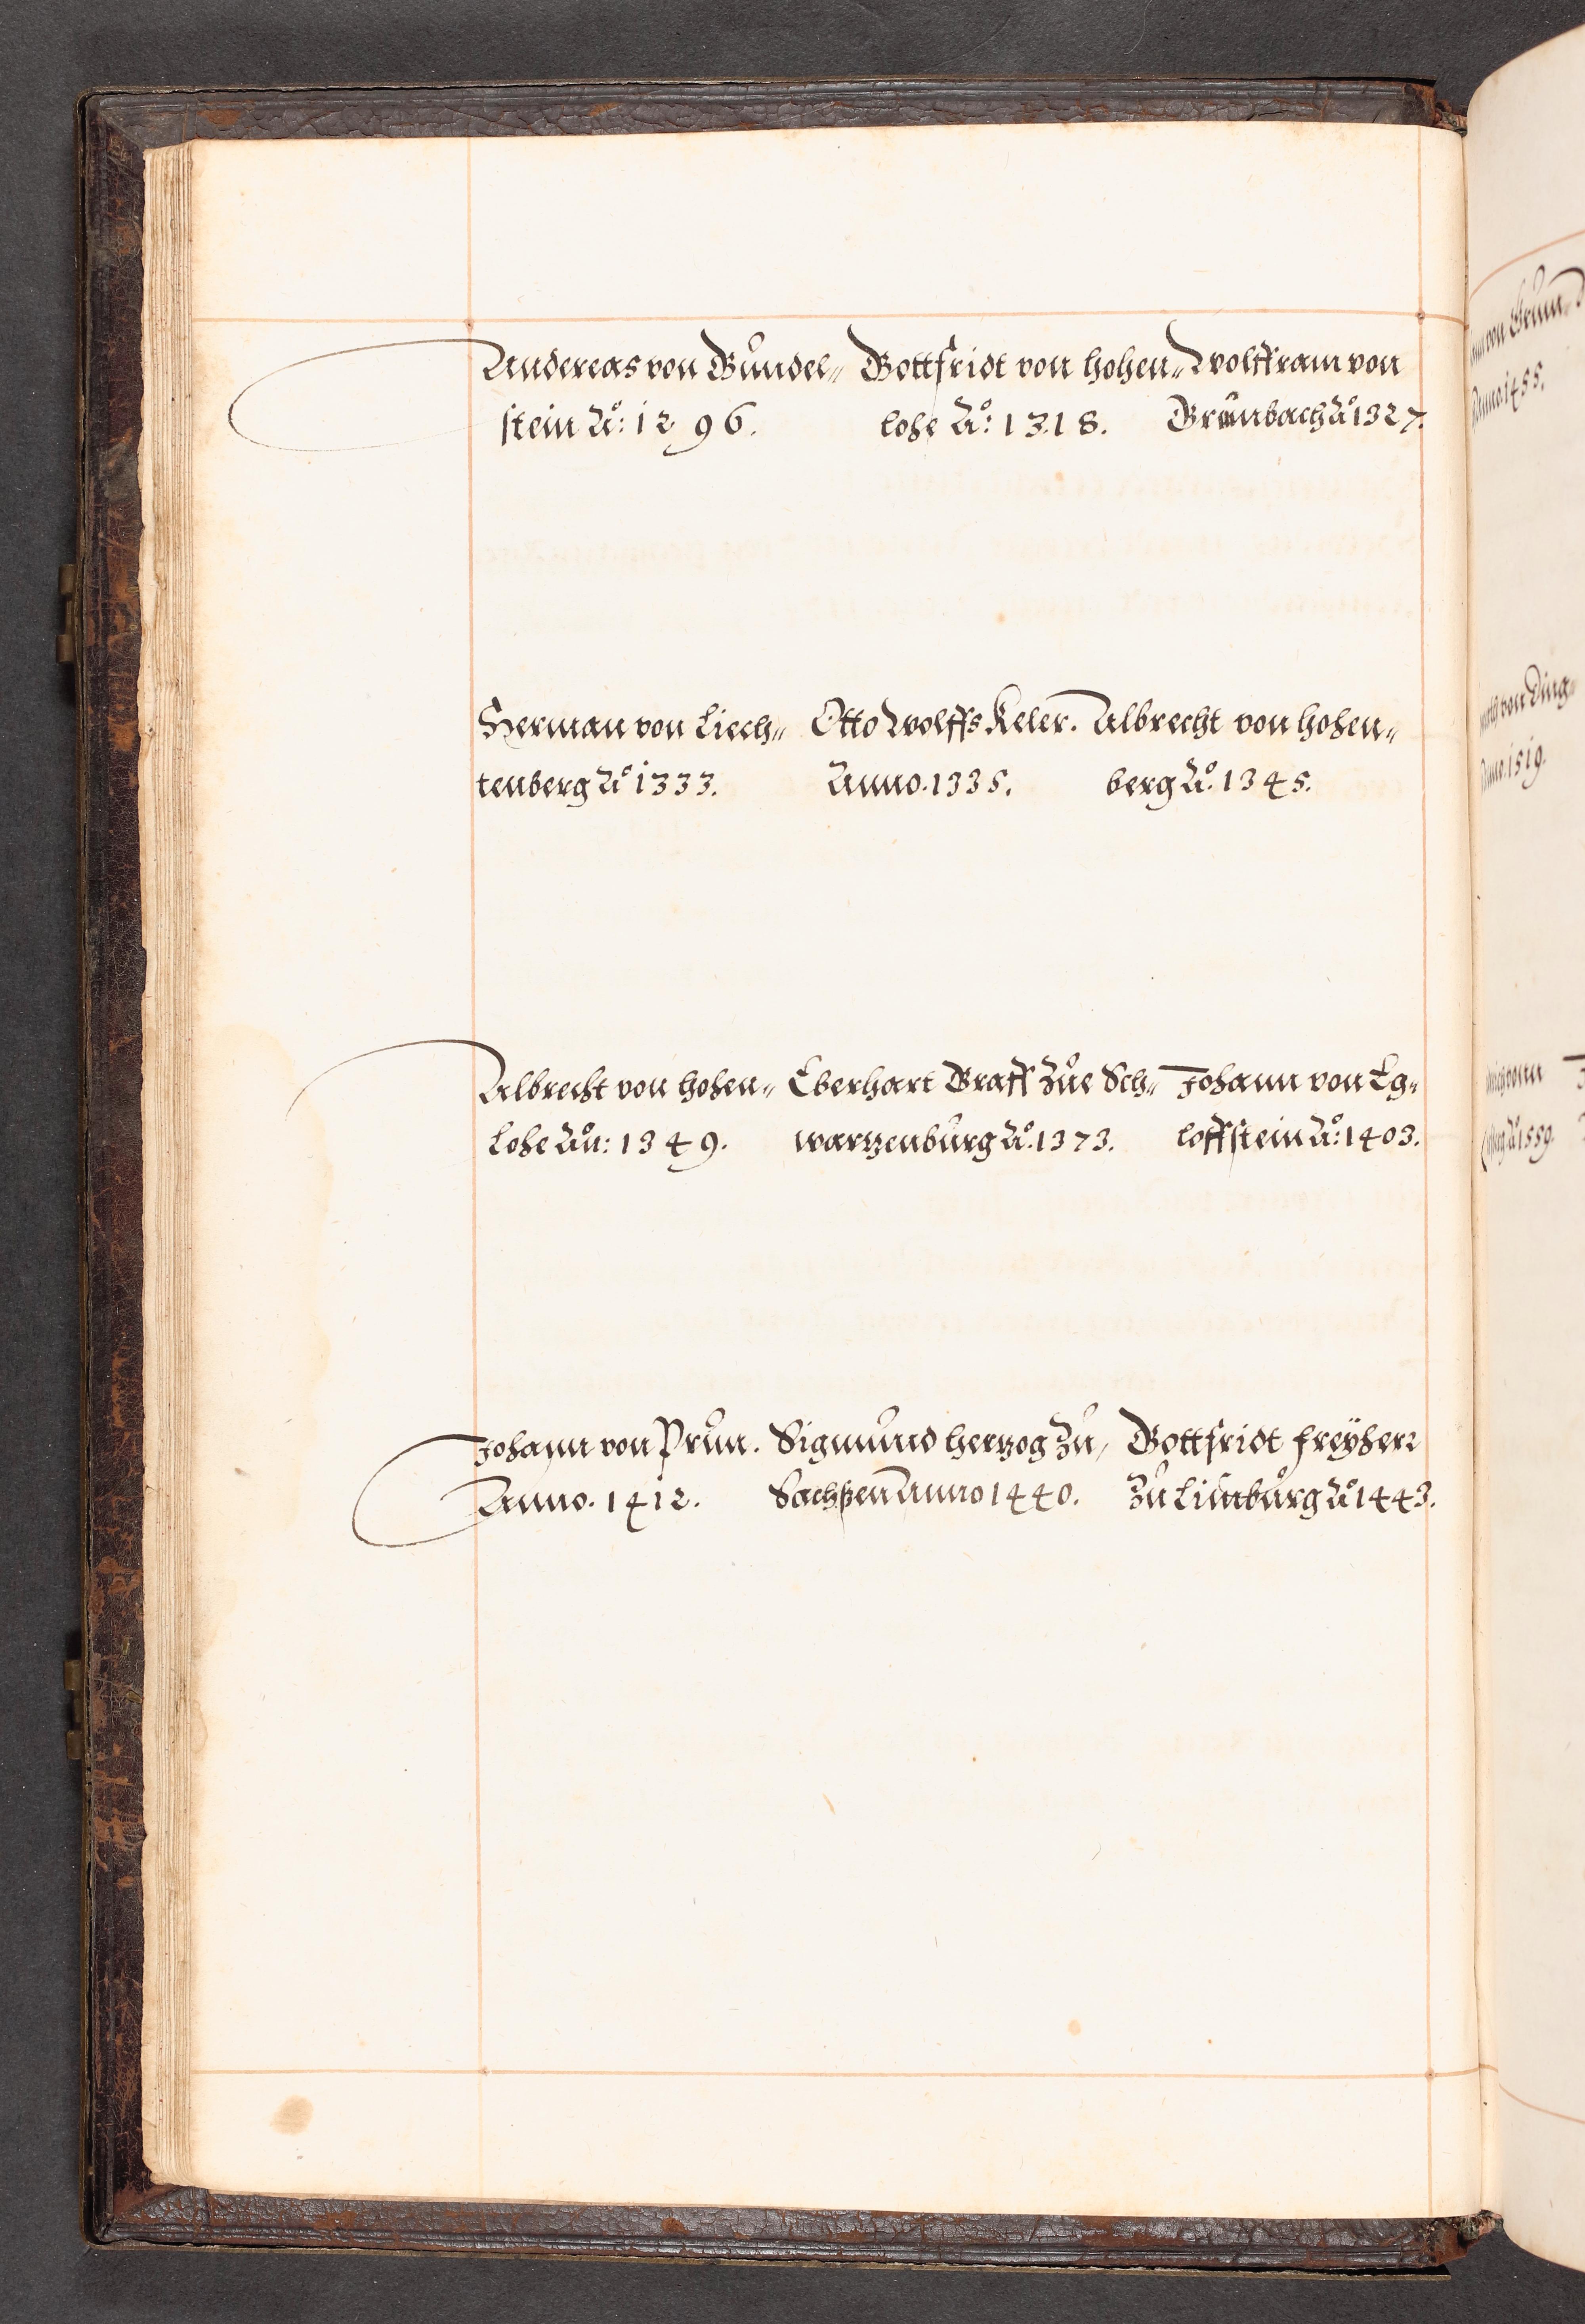 Andereas von Gundel„ Gottfridt von hohen„ Wolffram von
stein Aº: 1296. lohe Aº: 1318. Grünbach Aº 1327.
Herman von Liech„ Otto Wolffs Keler. Albrecht von hohen„
tenberg Aº 1333. Anno. 1335. berg Aº. 1345.
Albrecht von hohen„ Eberhart Graff zue Sch„ Johann von Eg„
Lohe Aõn: 1349. wartzenburg Aº. 1373. loffstein Aº: 1403.
Johann von Prun. Sigmund hertzog zu, Gottfridt freÿherr
Anno. 1412. Sachßen Anno 1440. zu Limburg Aº 1443.
von Grun„
Anno. 1455.
von Ding„
Anno. 1519.
Aº 1559.